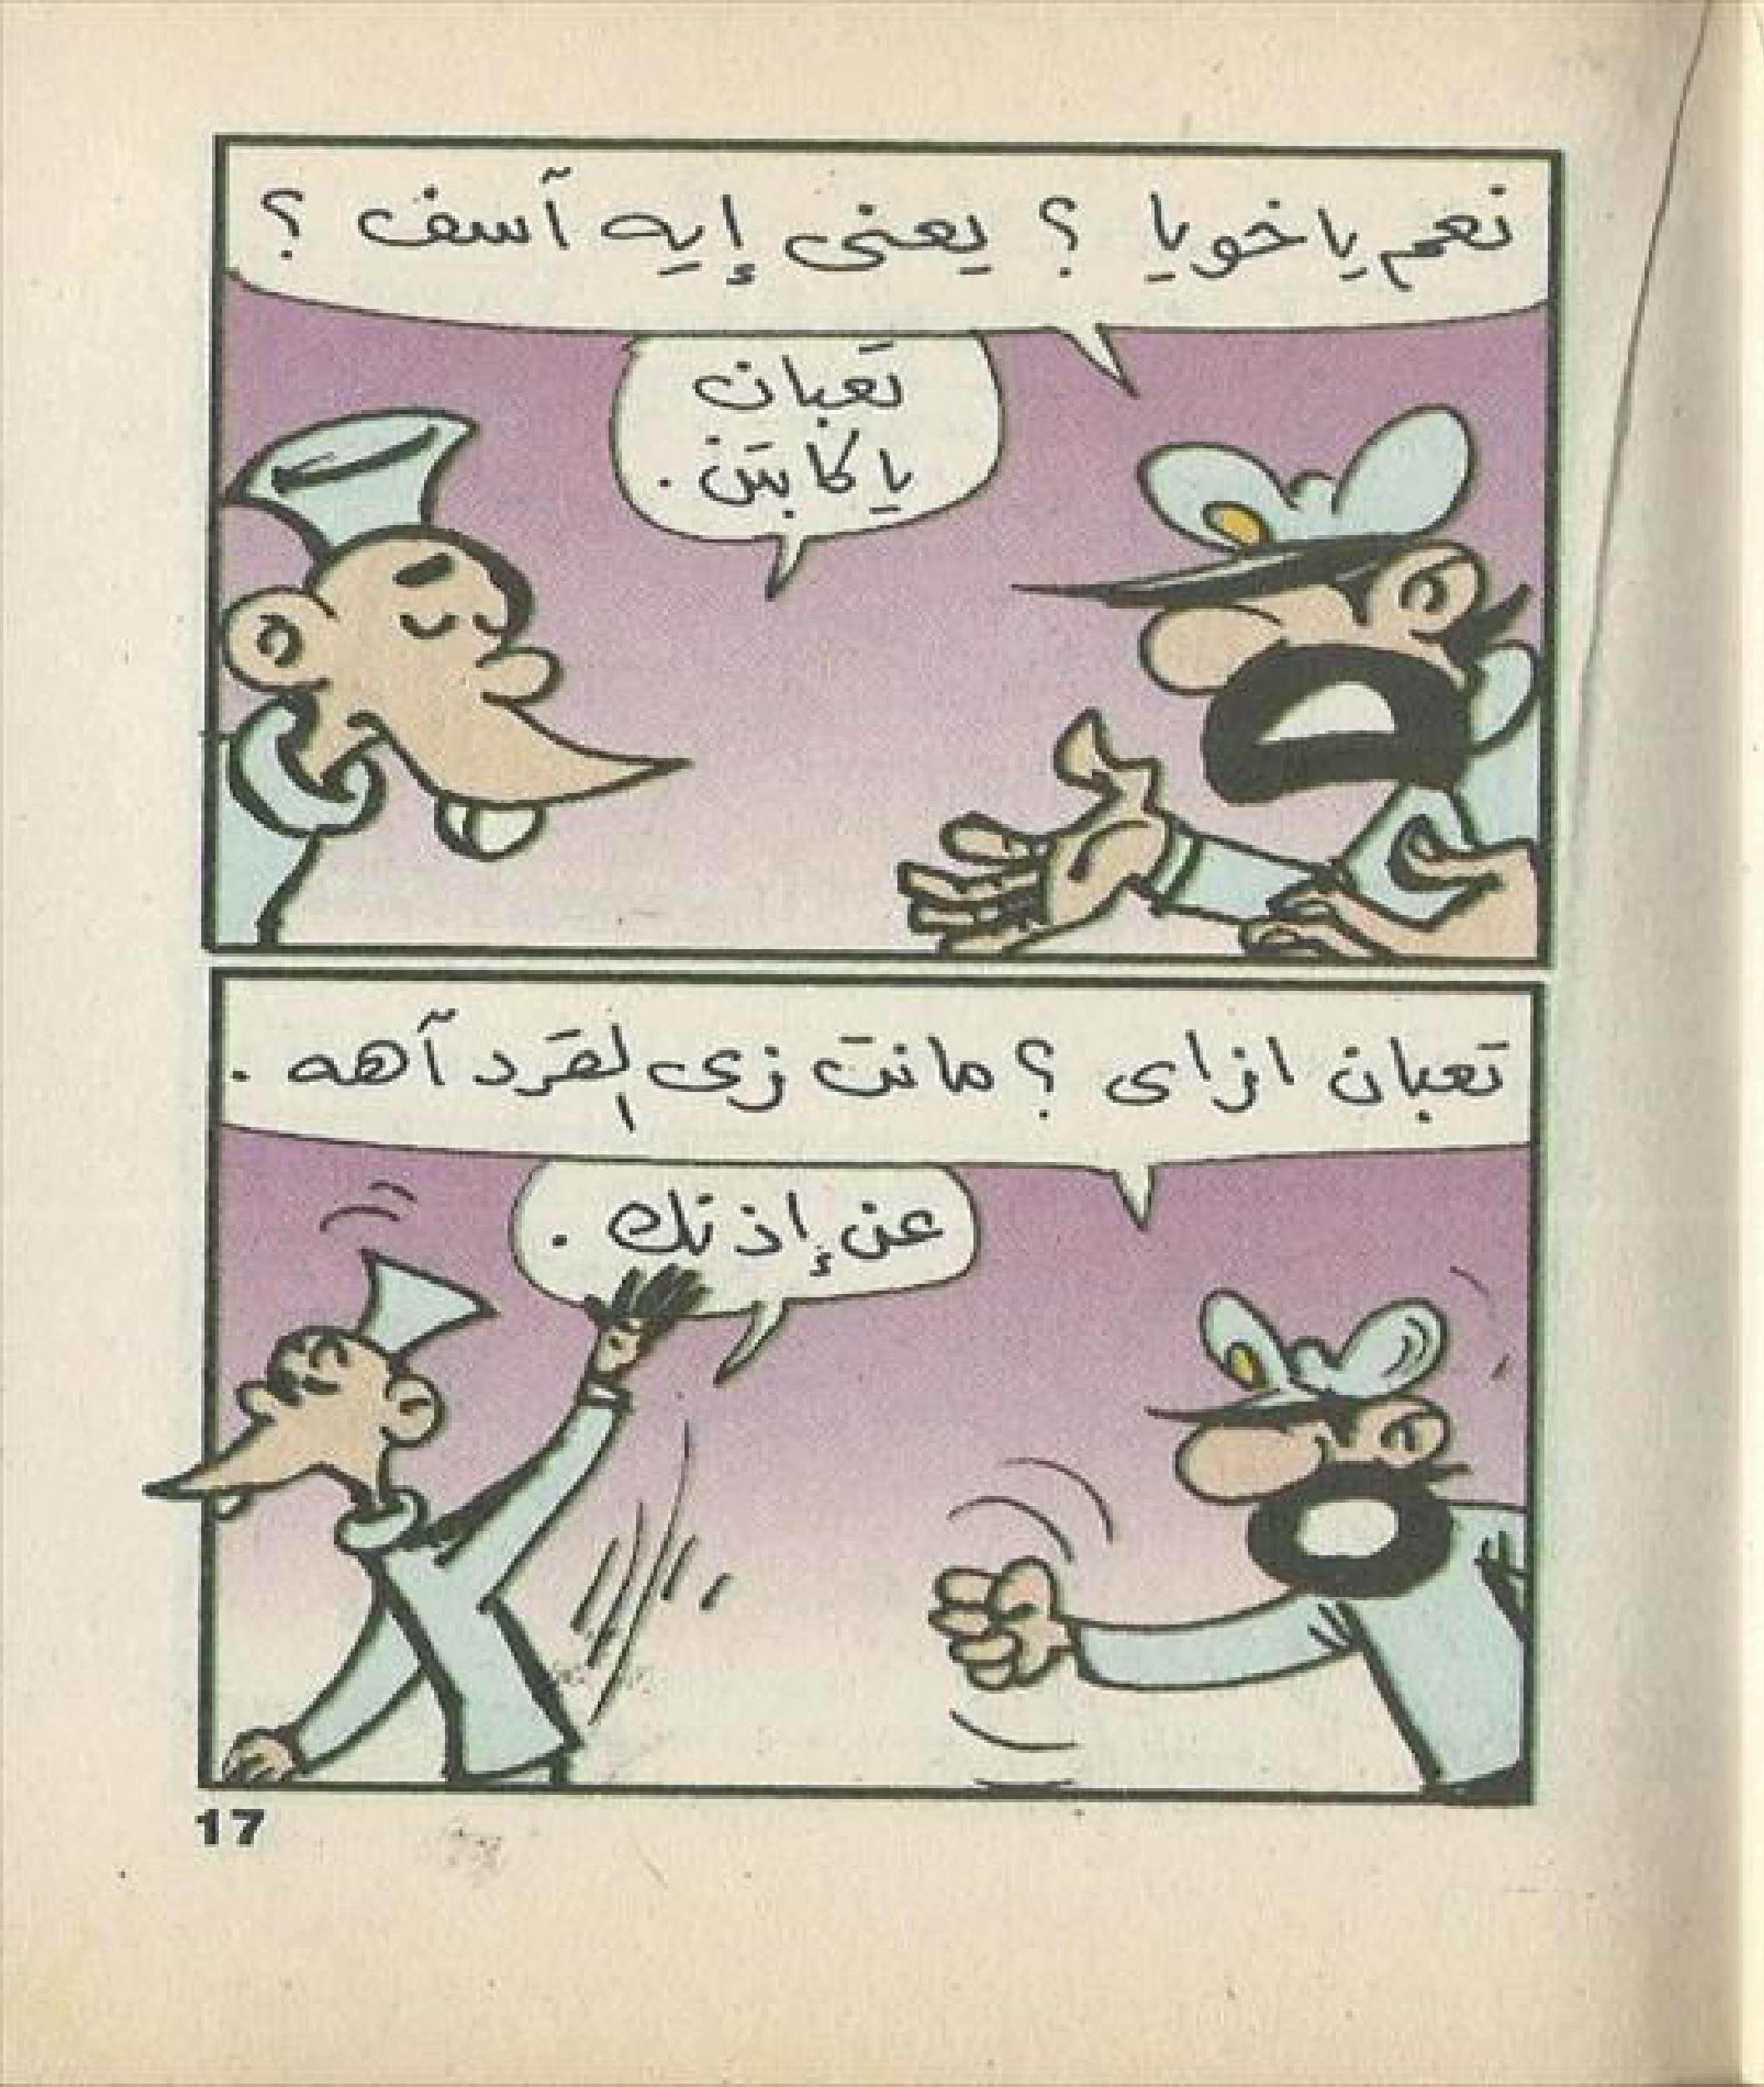 نعم ياخويا ؟ يعنى إيه آسف ؟
تعبان
يا كابتن .
تعبان ازاى ؟ مانت زى القرد آهه .
عن إذنك .
17